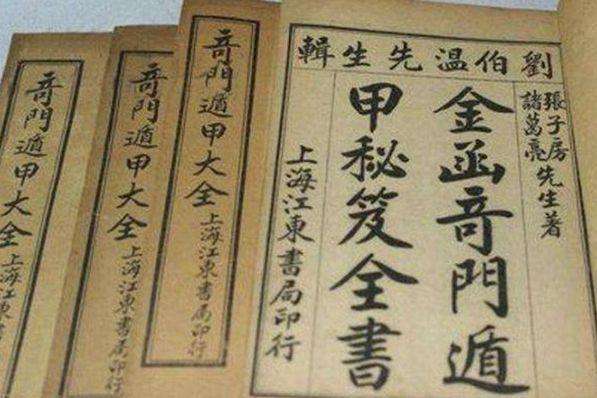 劉伯温先生輯
張子房
諸葛亮
先生著
金函竒門遁
甲秘笈全書
上海江東書局印行
竒門遁甲大全
上海江東書局印行
竒門遁甲大全
上海江東書局印行
竒門遁甲大全
上海江東